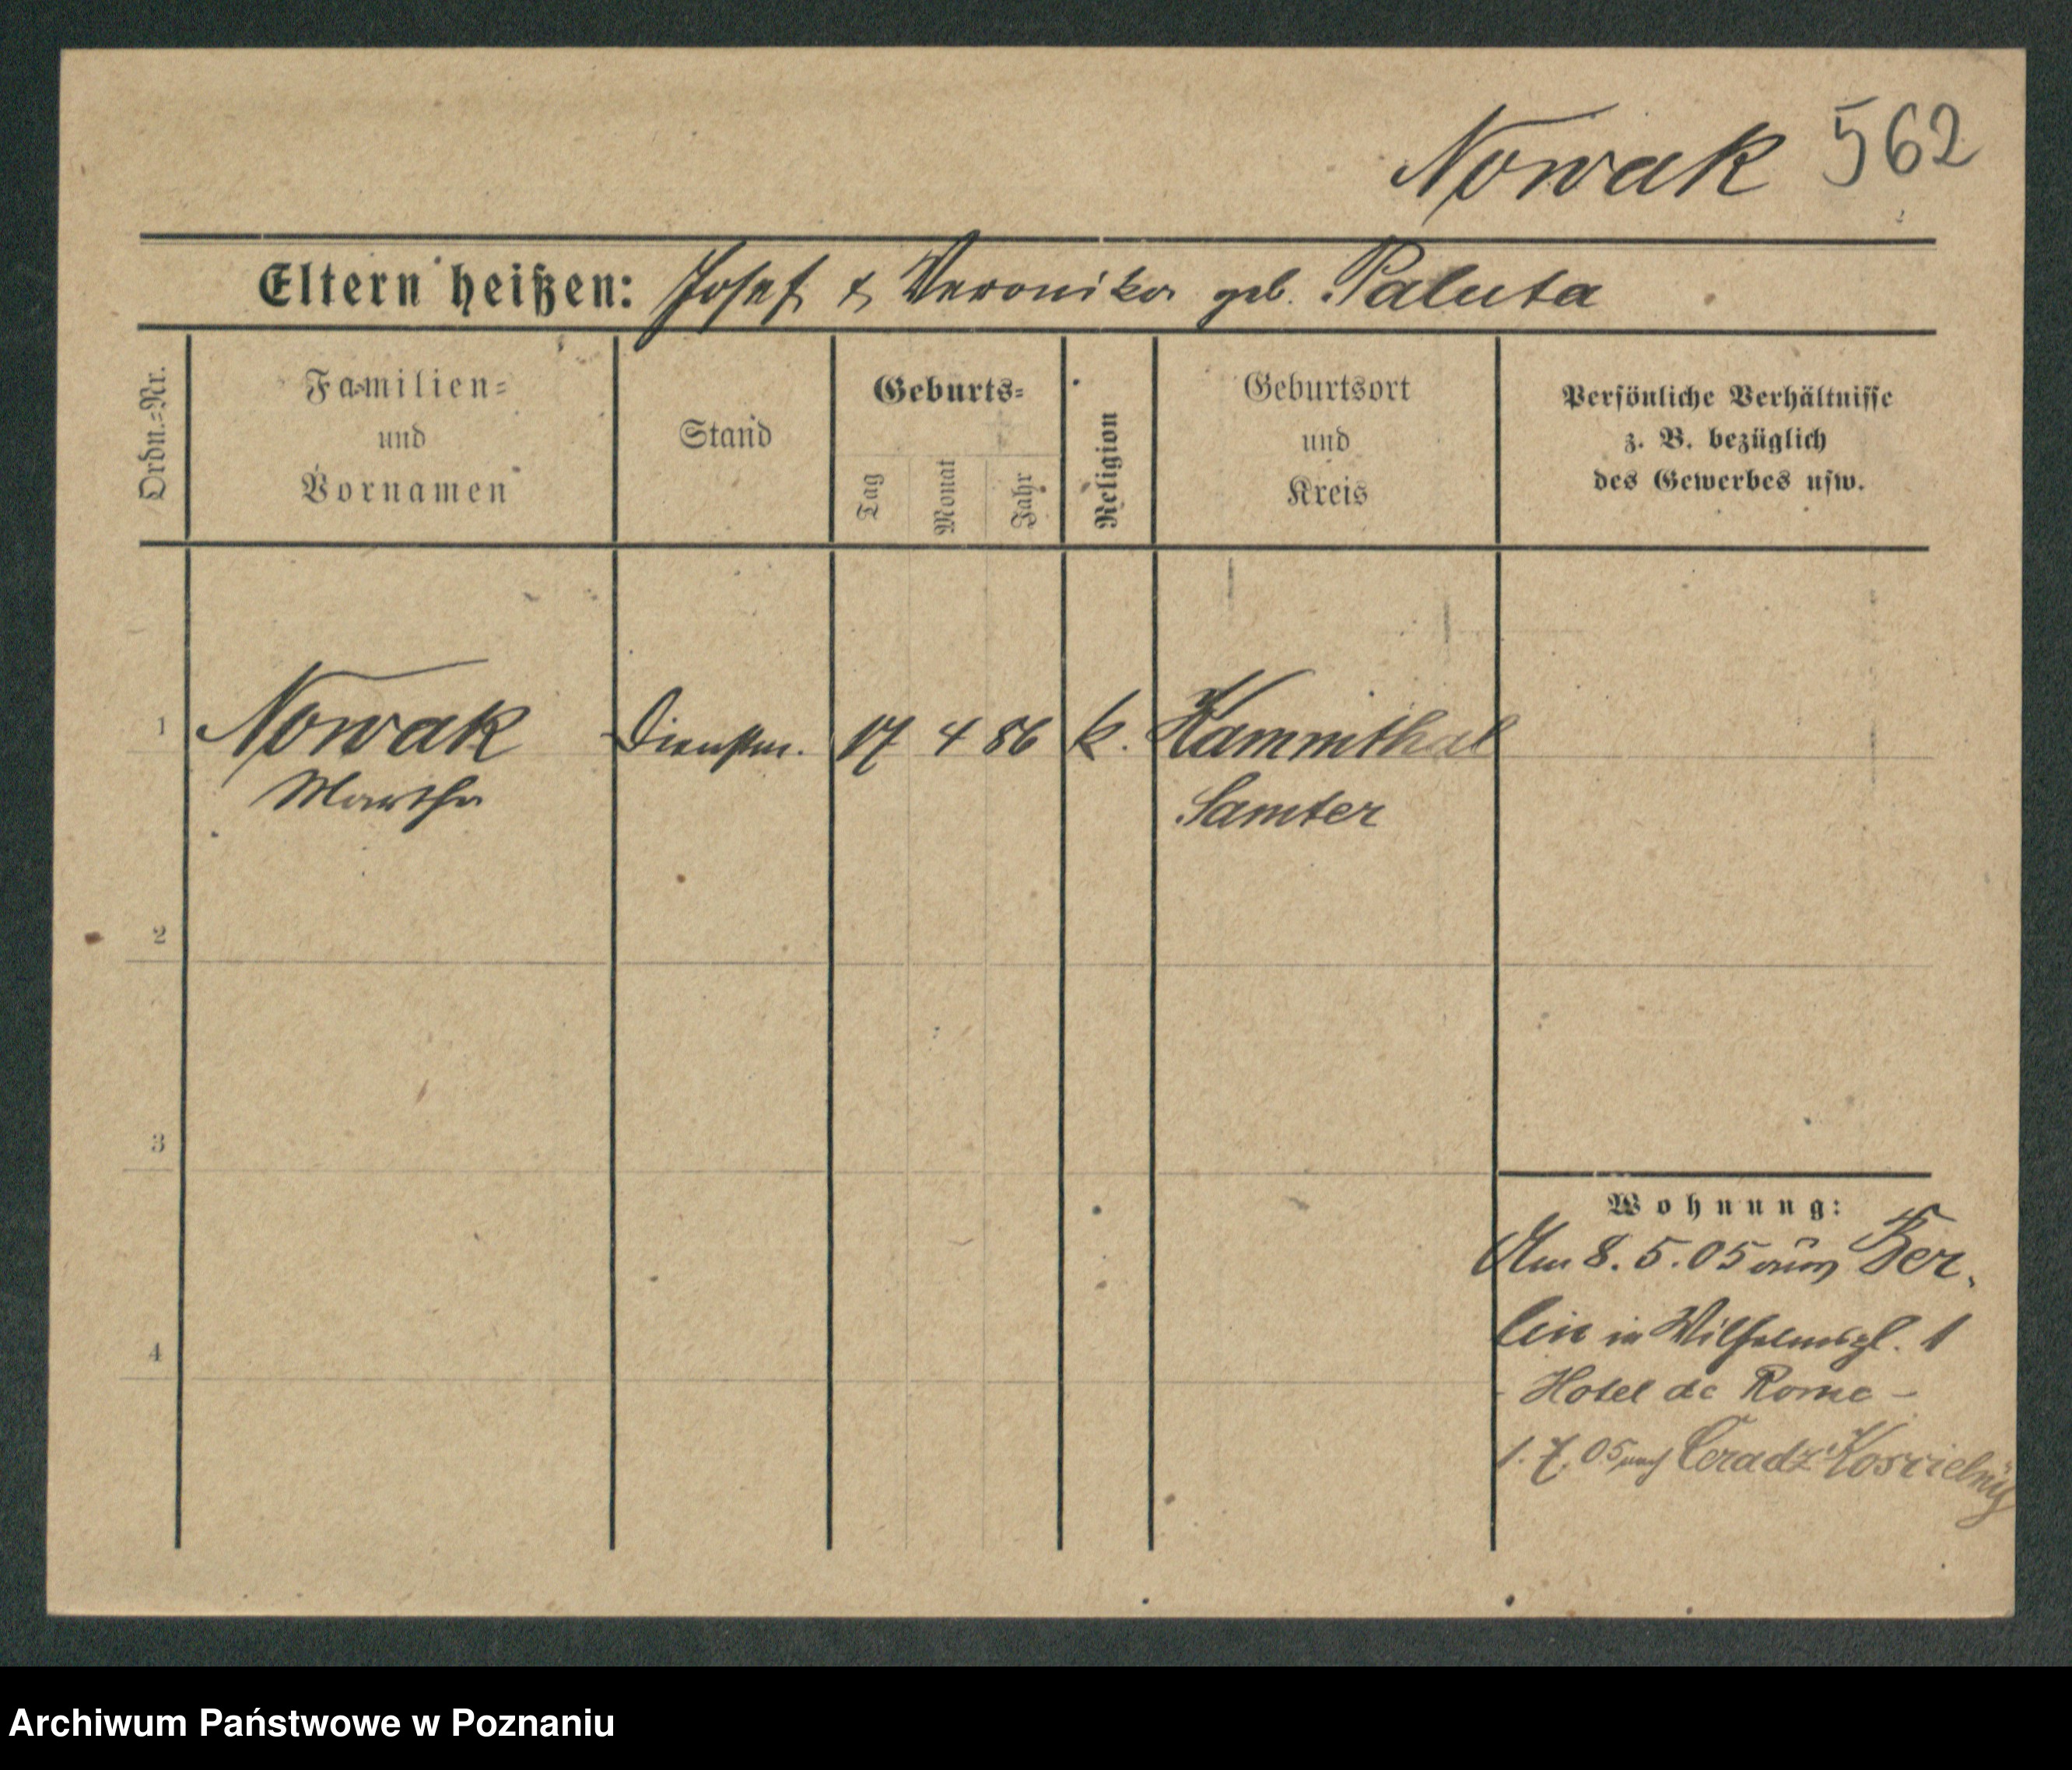 Nowak 562
Eltern heißen: Josef & Veronika geb. Paluta
Ordn.=Nr.
Familien=
und
Vornamen
Stand
Geburts=
Tag
Monat
Jahr
Religion
Geburtsort
und
Kreis
Persönliche Verhältnisse
z. B. bezüglich
des Gewerbes usw.
1 Nowak Dienstm. 17 4 86 k. Kammthal
Martha Samter
2
3
4
Wohnung:
Am 8. 5. 05 aus Ber-
lin in Wilhelmspl. 1
- Hotel de Rome -
1. 7. 05 nach Ceradz Koscielny
Archiwum Państwowe w Poznaniu